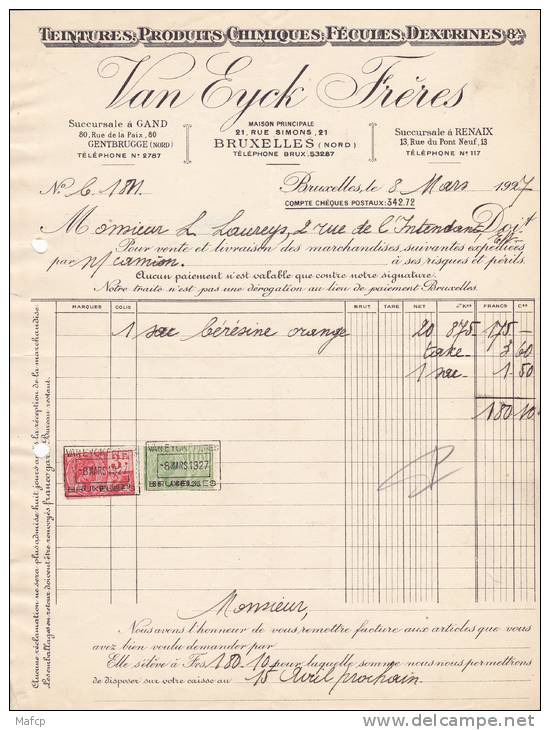 TEINTURES, PRODUITS CHIMIQUES, FÉCULES, DEXTRINES &ª
Van Eyck Frères
Succursale à GAND
80, Rue de la Paix, 80
GENTBRUGGE (NORD)
TÉLÉPHONE Nº 2787
MAISON PRINCIPALE
21, RUE SIMONS, 21
BRUXELLES (NORD)
TÉLÉPHONE BRUX. 53287
Succursale à RENAIX
13, Rue du Pont Neuf, 13
TÉLÉPHONE Nº 117
Nº C. 1811. Bruxelles, le 8 Mars 1927
COMPTE CHÈQUES POSTAUX: 342.72
Monsieur L. Laureys, 2 rue de l'Intendant Doit
Pour vente et livraison des marchandises, suivantes expédiées
par n/ camion. à ses risques et périls.
Aucun paiement n'est valable que contre notre signature.
Notre traite n'est pas une dérogation au lieu de paiement Bruxelles.
MARQUES COLIS BRUT TARE NET FRANCS Cᵉˢ
1 sac bérésine orange 20 875- 175 -
taxe 3 60
1 sac 1 50
180 10
VAN EYCK FRERES
-8 MARS 1927
BRUXELLES
VAN EYCK FRERES
-8 MARS 1927
BRUXELLES
Aucune réclamation ne sera plus admise huit jours après la réception de la marchandise.
Les emballages en retour doivent être renvoyés franco gare Bureau restant.
Monsieur,
Nous avons l'honneur de vous remettre facture aux articles que vous
avez bien voulu demander par
Elle s'élève à Frs 180-10 pour laquelle somme nous nous permettrons
de disposer sur votre caisse au 15 Avril prochain.
Mafcp
delcampe.net